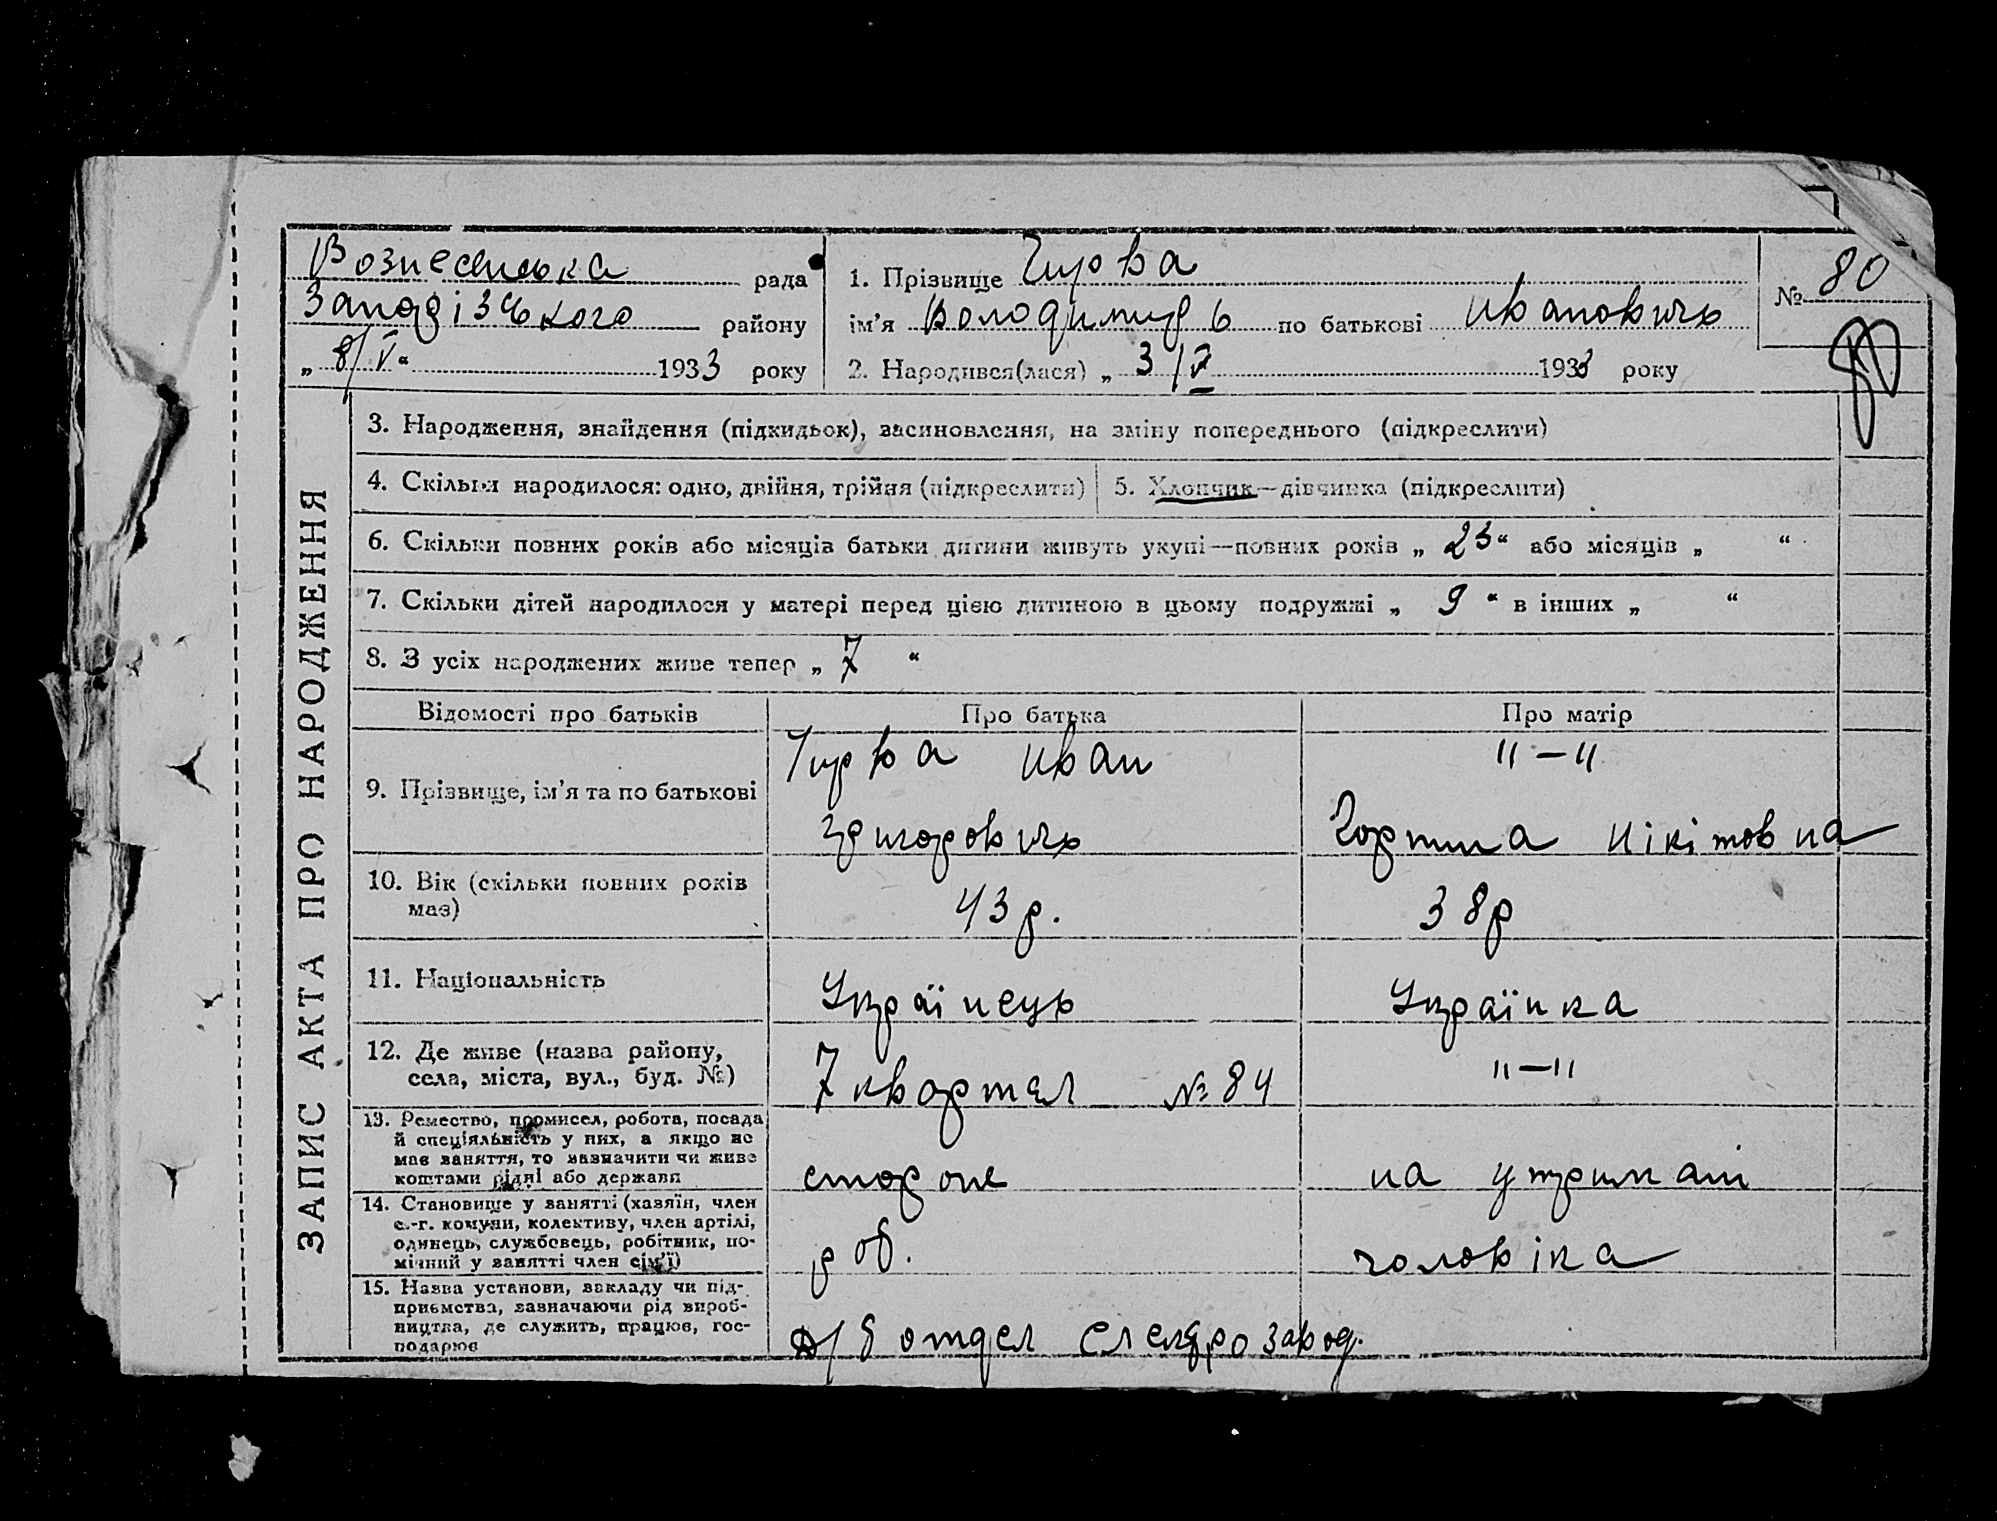 Вознесенська рада
Запорізького району
„ 8/V “ 1933 року
1. Прізвище Чирва
ім’я Володимиръ по батькові Ивановичь
2. Народився(лася) „ 3/V 1933 року
№ 80
80
ЗАПИС АКТА ПРО НАРОДЖЕННЯ
3. Народження, знайдення (підкидьок), засиновлення, на зміну попереднього (підкреслити)
4. Скільки народилося: одно, двійня, трійня (підкреслити)
5. Хлопчик—дівчинка (підкреслити)
6. Скільки повних років або місяців батьки дитини живуть укупі—повних років „ 23 “ або місяців „ “
7. Скільки дітей народилося у матері перед цією дитиною в цьому подружжі „ 9 “ в інших „ “
8. З усіх народжених живе тепер „ 7 “
Відомості про батьків
Про батька
Про матір
9. Прізвище, ім’я та по батькові
Чирва Иван
григоровичь
11—11
Нікітовна
10. Вік (скільки повних років
має)
43 р.
38 р
11. Національність
Українець
Українка
12. Де живе (назва району,
села, міста, вул., буд. №)
7 квартал № 84
11—11
13. Ремество, промисел, робота, посада
й спеціяльність у них, а якщо не
має заняття, то зазначити чи живе
коштами рідні або держави
сторож
на утримані
14. Становище у занятті (хазяїн, член
с.-г. комуни, колективу, член артілі,
одинець, службовець, робітник, по-
мічний у занятті член сім’ї)
роб.
чоловіка
15. Назва установи, закладу чи під-
приємства, зазначаючи рід вироб-
ництва, де служить, працює, гос-
подарює
отдел Електрозавод.